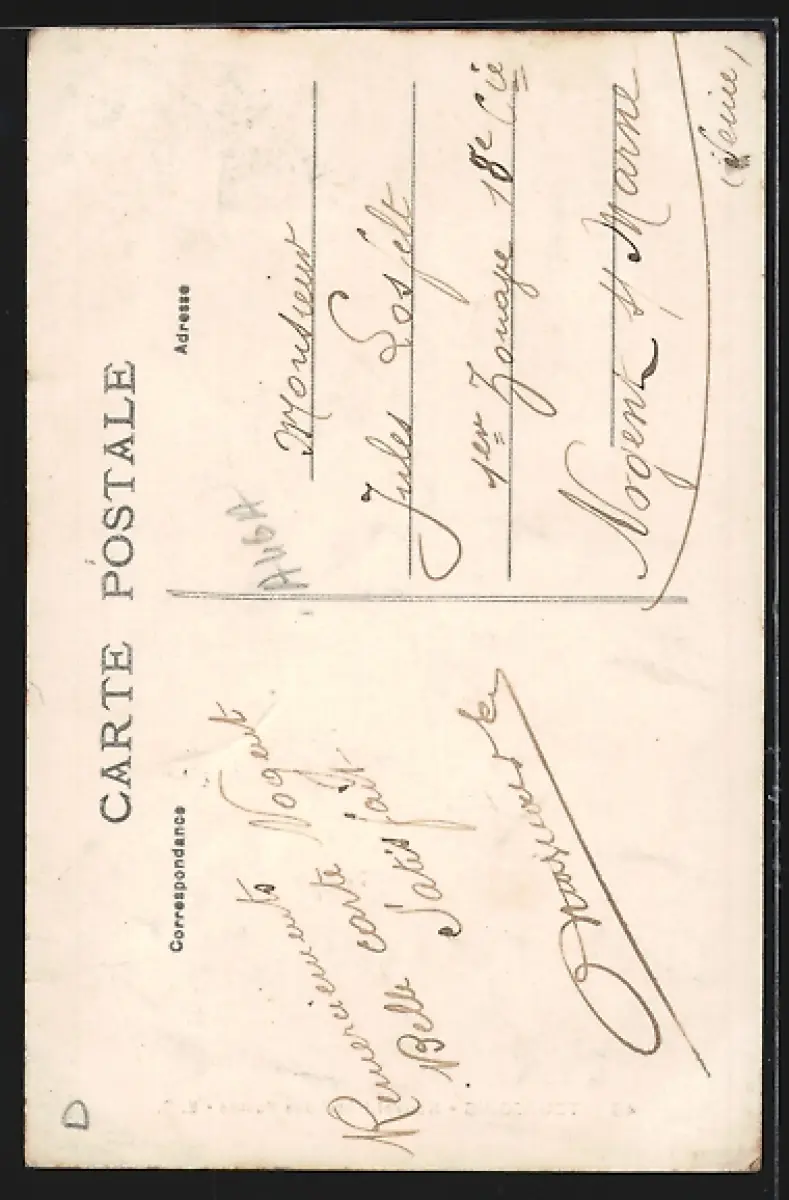 CARTE POSTALE
Correspondance
Remerciements Nogent
Belle carte
Satisfait
Adresse
Monsieur
Jules Losfelt
1er Zouave 18e Cie
Nogent s/ Marne
(Seine)
D